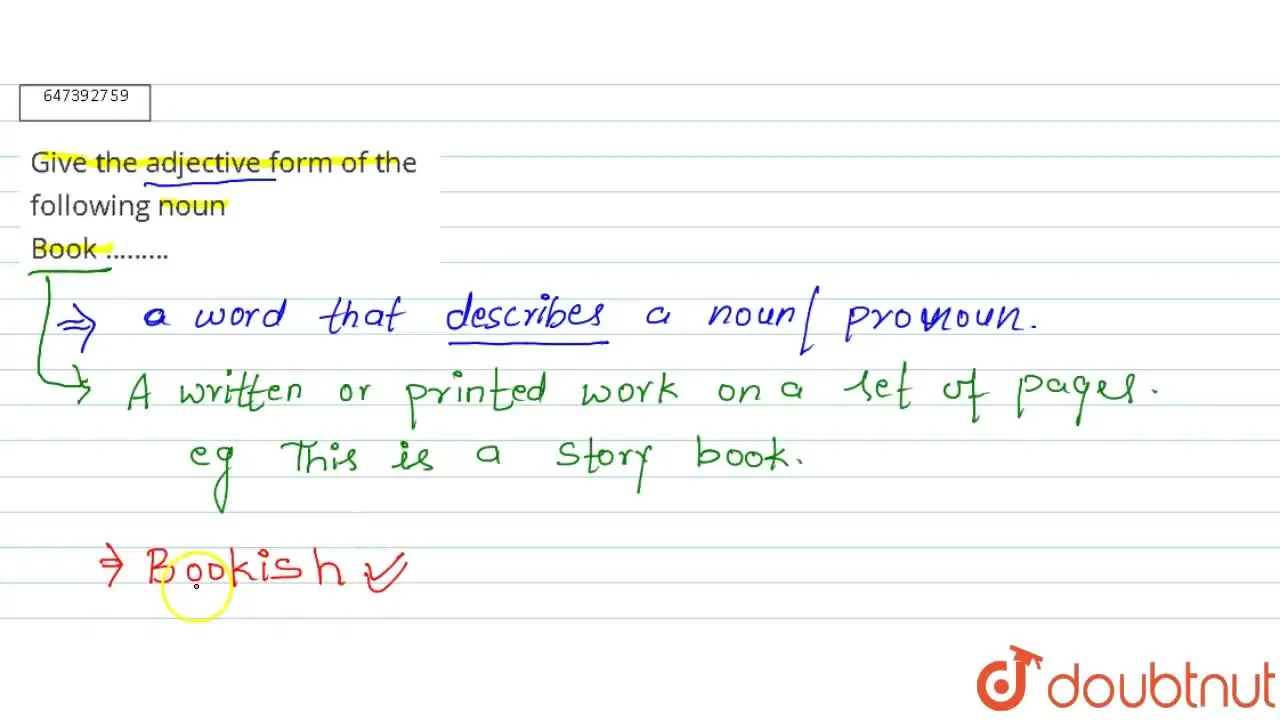 647392759
Give the adjective form of the
following noun
Book .........
⇒ a word that describes a noun/ pronoun.
→ A written or printed work on a set of pages.
eg This is a story book.
⇒ Bookish ✓
doubtnut